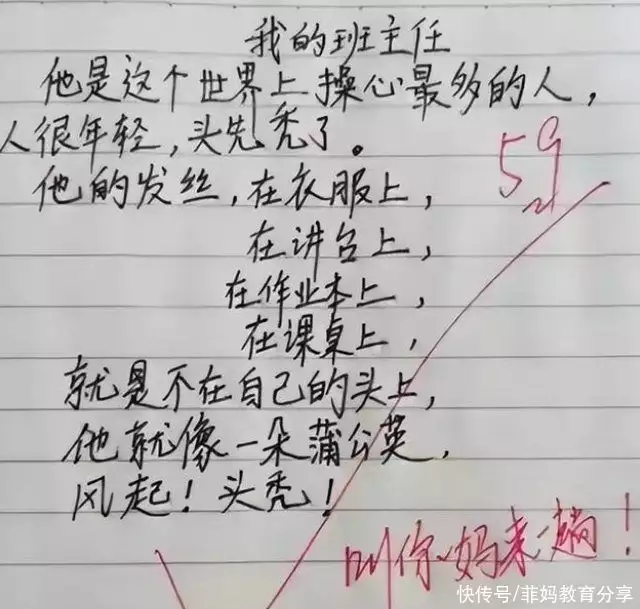 我的班主任
他是这个世界上操心最多的人，
人很年轻，头先秃了。
59
他的发丝，在衣服上，
在讲台上，
在作业本上，
在课桌上，
就是不在自己的头上，
他就像一朵蒲公英，
风起！头秃！
叫你妈来一趟！
快传号/菲妈教育分享